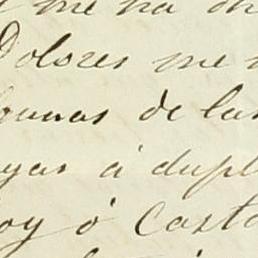 me ha
Dolores me
gunas de las
yas á dupl
oy ó Casta